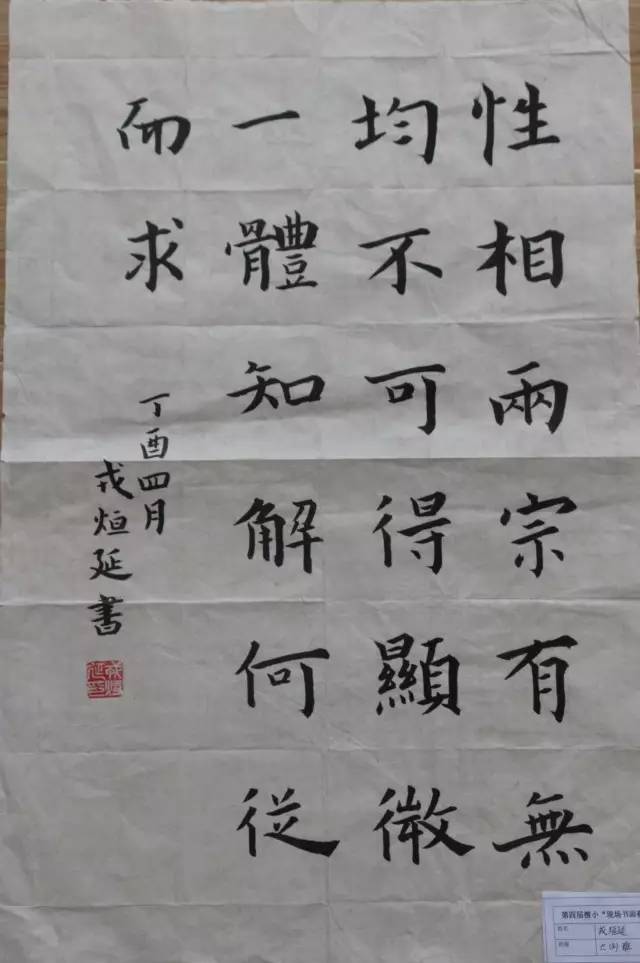 性相兩宗有無
均不可得顯微
一體知解何從
而求
丁酉四月
戎烜延書
第四届檀小“现场书画
姓名
戎烜延